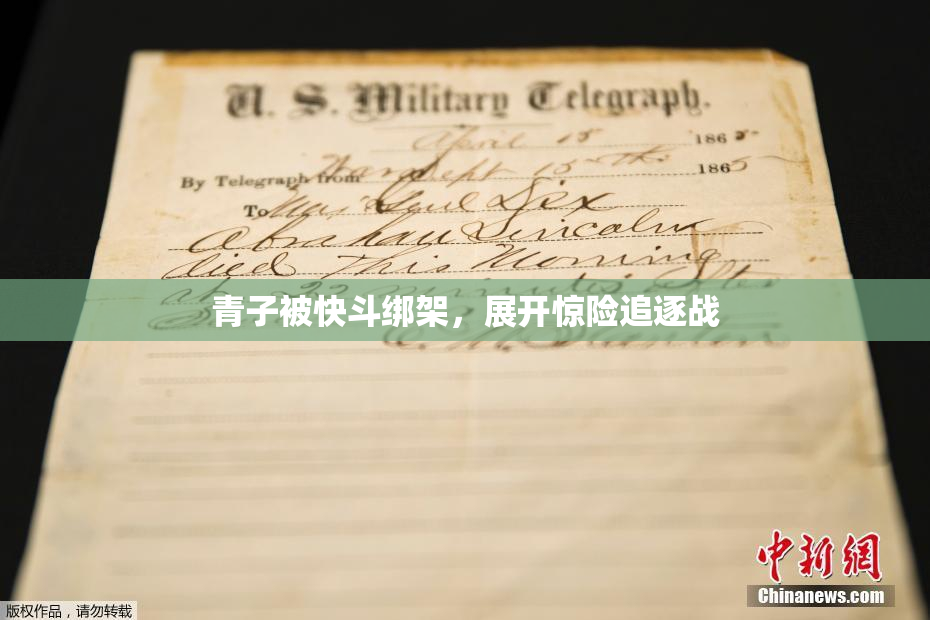 U. S. Military Telegraph.
April 15 1865
By Telegraph from War Dept 15th 1865
To Maj Genl Dix
Abraham Lincoln
died This Morning
at 22 minutes after
青子被快斗绑架，展开惊险追逐战
E. M. Stanton
中新网
Chinanews.com
版权作品，请勿转载